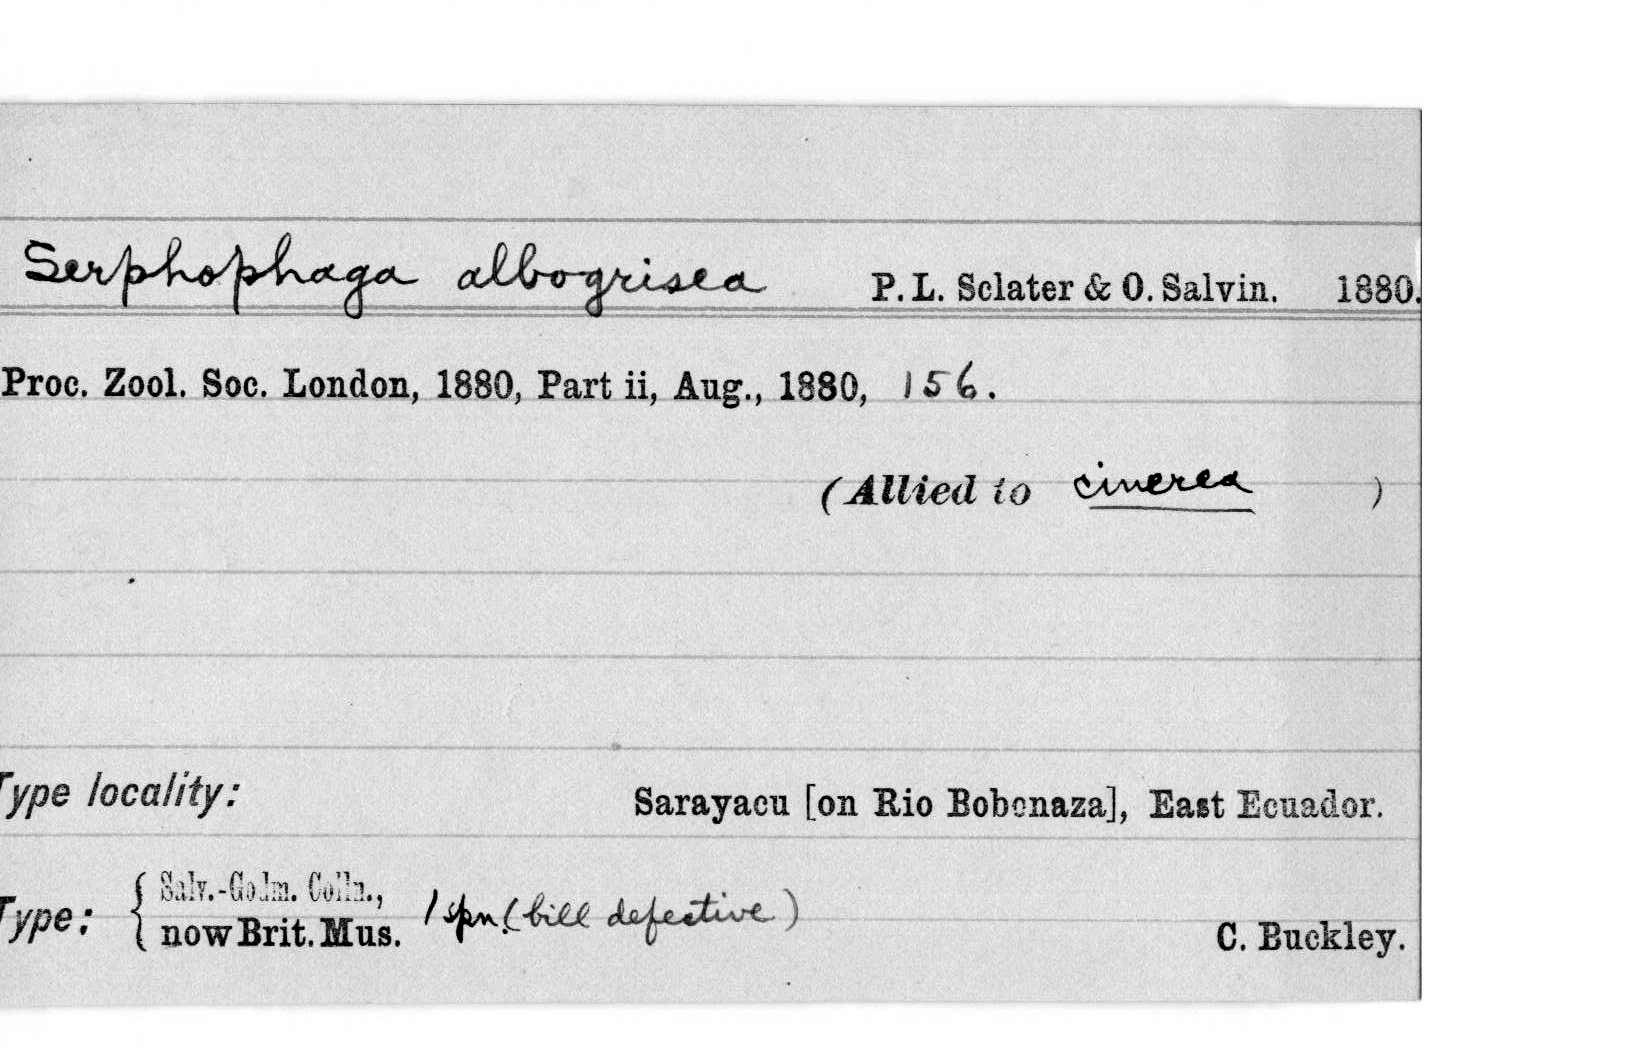 Serphophaga albogrisea P. L. Sclater & O. Salvin. 1880.
Proc. Zool. Soc. London, 1880, Part ii, Aug., 1880, 156.
(Allied to cinerea )
Type locality: Sarayacu [on Rio Bobonaza], East Ecuador.
Type: { Salv.-Godm. Colln.,
now Brit. Mus. 1 spn. (bill defective) C. Buckley.